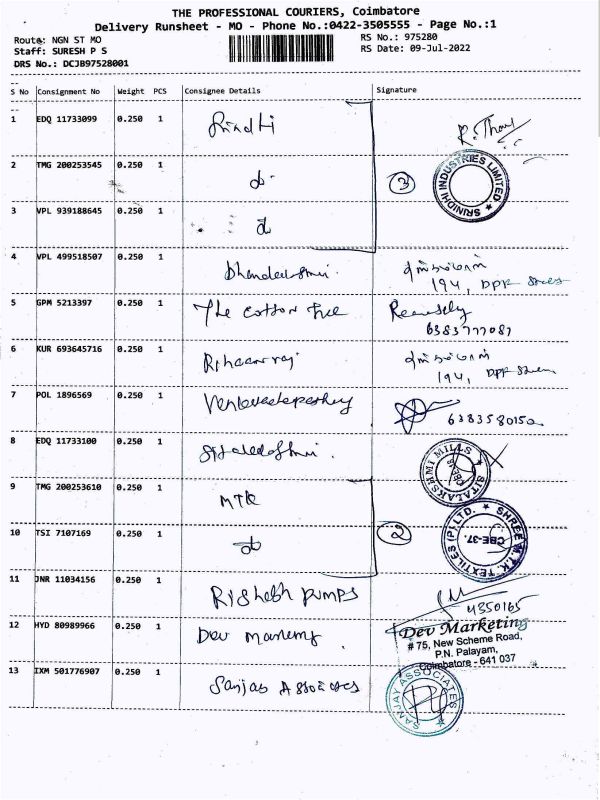 THE PROFESSIONAL COURIERS, Coimbatore
Delivery Runsheet - MO - Phone No.:0422-3505555 - Page No.:1
Route: NGN ST MO
RS No.: 975280
Staff: SURESH P S
RS Date: 09-Jul-2022
DRS No.: DCJB97528001
S No Consignment No Weight PCS Consignee Details Signature
1 EDQ 11733099 0.250 1 R. Thour
2 TMG 200253545 0.250 1 do 3 SRINIDHI INDUSTRIES LIMITED
3 VPL 939188645 0.250 1 do
4 VPL 499518507 0.250 1 Dhandalakshmi.
194, DPF Street
5 GPM 5213397 0.250 1 The cotton tree
6383777087
6 KUR 693645716 0.250 1
194, DPF Street
7 POL 1896569 0.250 1 6383580152
8 EDQ 11733100 0.250 1 Sitalakshmi. SITALAKSHMI MILLS
9 TMG 200253610 0.250 1 MTK
10 TSI 7107169 0.250 1 do 2 SHREE M.T.K. TEXTILES (P) LTD. CBE-37.
11 JNR 11034156 0.250 1 Rishabh pumps
4350165
12 HYD 80989966 0.250 1 Dev Marketing Dev Marketing
# 75, New Scheme Road,
P.N. Palayam,
Coimbatore - 641 037
13 IXM 501776907 0.250 1 Sanjay Associates SANJAY ASSOCIATES